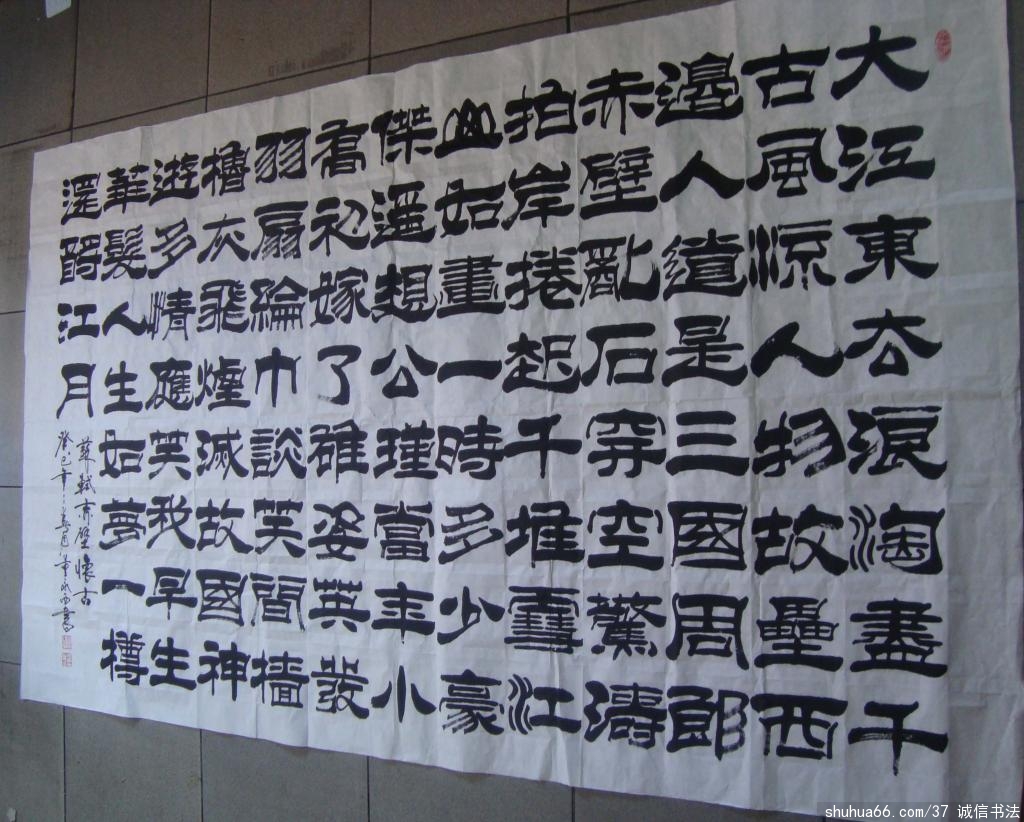 大江東去浪淘盡千
古風涼人物故壘西
邊人道是三國周郎
赤壁亂石穿空驚濤
拍岸捲起千堆雪江
山如畫一時多少豪
傑遥想公瑾當年小
喬初嫁了雄姿英發
羽扇綸巾談笑間檣
櫓灰飛煙滅故國神
遊多情應笑我早生
華髮人生如夢一樽
還酹江月
蘇軾赤壁懷古
癸巳年
shuhua66.com/37 诚信书法